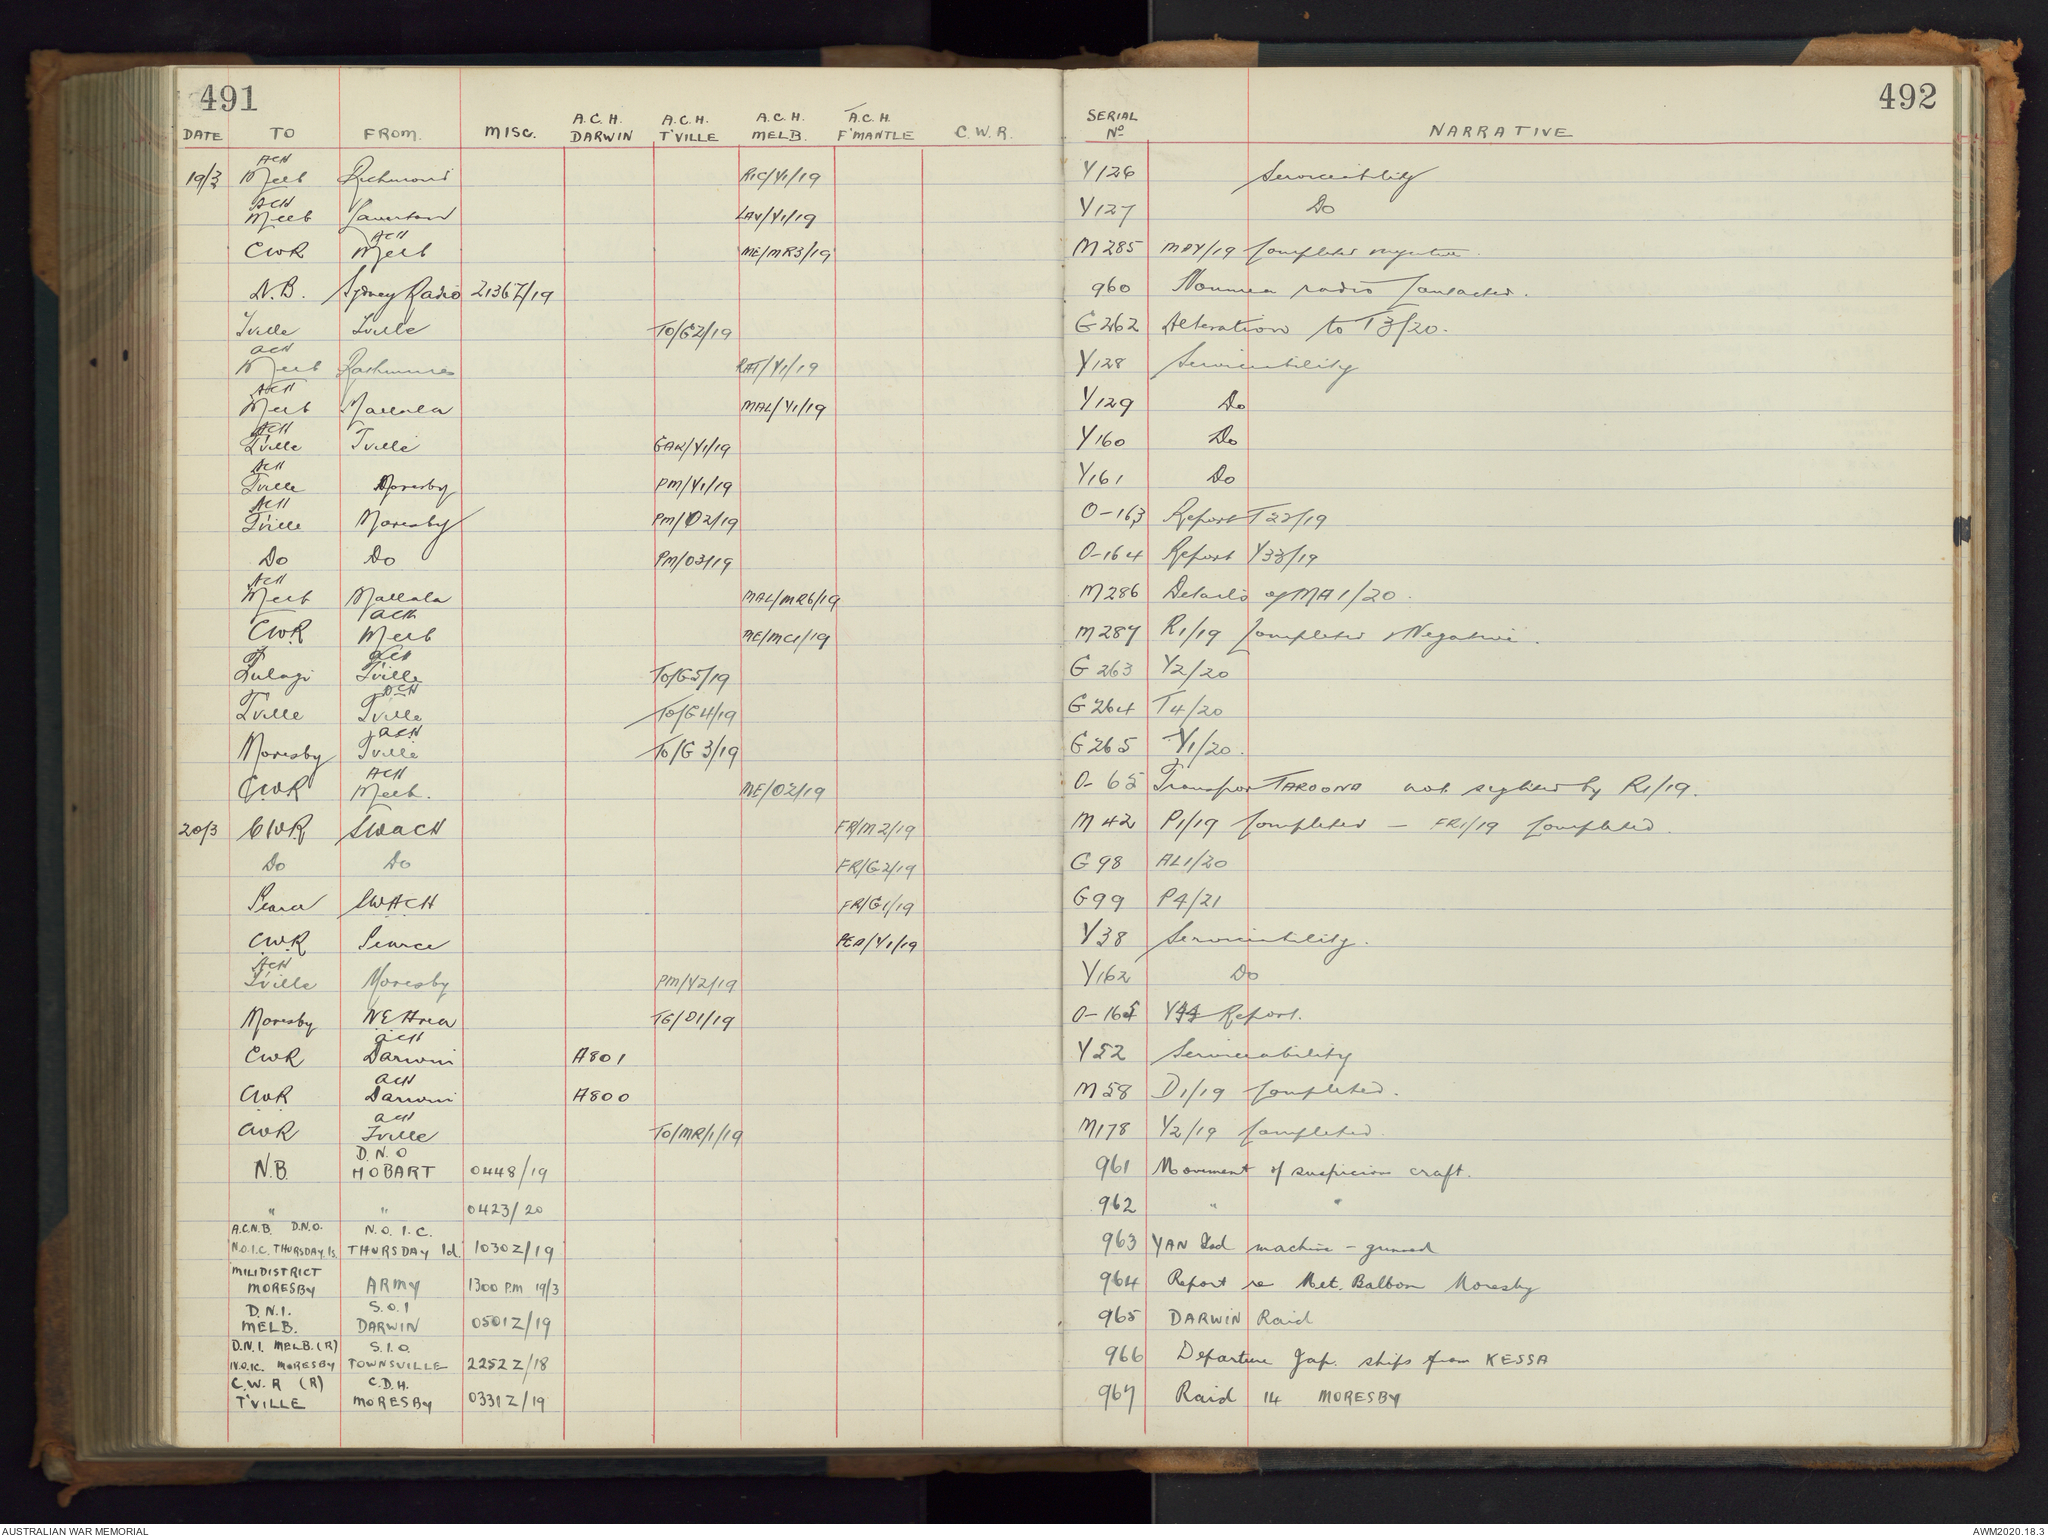 491
492
DATE TO FROM. MISC. A.C.H. DARWIN A.C.H. T'VILLE A.C.H. MELB. A.C.H. F'MANTLE C.W.R. SERIAL No NARRATIVE
19/3 ACH Melb Richmond RIC/Y1/19 Y126 Serviceability
ACH Melb Laverton LAV/Y1/19 Y127 Do
CWR ACH Melb ME/MR3/19 M285 completed negative.
N.B. Sydney Radio 2136Z/19 960 Noumea radio contacted.
Tville Tville TO/G2/19 G262 Alteration to T3/20.
ACH Melb Rathmines RAT/Y1/19 Y128 Serviceability
ACH Melb Mallala MAL/Y1/19 Y129 Do
ACH T'ville Tville GAR/Y1/19 Y160 Do
ACH Tville Moresby PM/Y1/19 Y161 Do
ACH T'ville Moresby PM/O2/19 O-163 Report T22/19
Do Do PM/O3/19 O-164 Report Y33/19
ACH Melb Mallala MAL/MR6/19 M286 Details of MA1/20.
CWR ACH Melb ME/MC1/19 M287 R1/19 Completed Negative.
Tulagi ACH T'ville TO/G5/19 G263 Y2/20
Tville ACH Tville TO/G4/19 G264 T4/20
Moresby ACH Tville TO/G3/19 G265 Y1/20.
CWR ACH Melb. ME/O2/19 O-65 Transport TAROONA not sighted by R1/19.
20/3 CWR SWACH FR/M2/19 M42 P1/19 Completed — FR1/19 Completed.
Do Do FR/G2/19 G98 AL1/20
Pearce SWACH FR/G1/19 G99 P4/21
CWR Pearce PEA/Y1/19 Y38 Serviceability.
ACH T'ville Moresby PM/Y2/19 Y162 Do
Moresby NE Area TG/O1/19 O-165 Report.
CWR ACH Darwin A801 Y52 Serviceability
CWR ACH Darwin A800 M58 D1/19 Completed.
CWR ACH Tville TO/MR/1/19 M178 Y2/19 Completed.
N.B. D.N.O HOBART 0448/19 961 Movement of suspicious craft.
" " 0423/20 962 " "
A.C.N.B. D.N.O. N.O.I.C. THURSDAY Is. N.O.I.C. THURSDAY Id. 1030Z/19 963 YAM Isd machine-gunned
MILIDISTRICT MORESBY ARMY 1300 PM 19/3 964 Report re Met. Balloon Moresby
D.N.I. MELB. S.O.I DARWIN 0501Z/19 965 DARWIN Raid
D.N.I. MELB.(R) N.O.IC. MORESBY S.I.O. TOWNSVILLE 2252Z/18 966 Departure Jap. ships from KESSA
C.W.R (R) T'VILLE C.D.H. MORESBY 0331Z/19 967 Raid 14 MORESBY
AUSTRALIAN WAR MEMORIAL
AWM2020.18.3